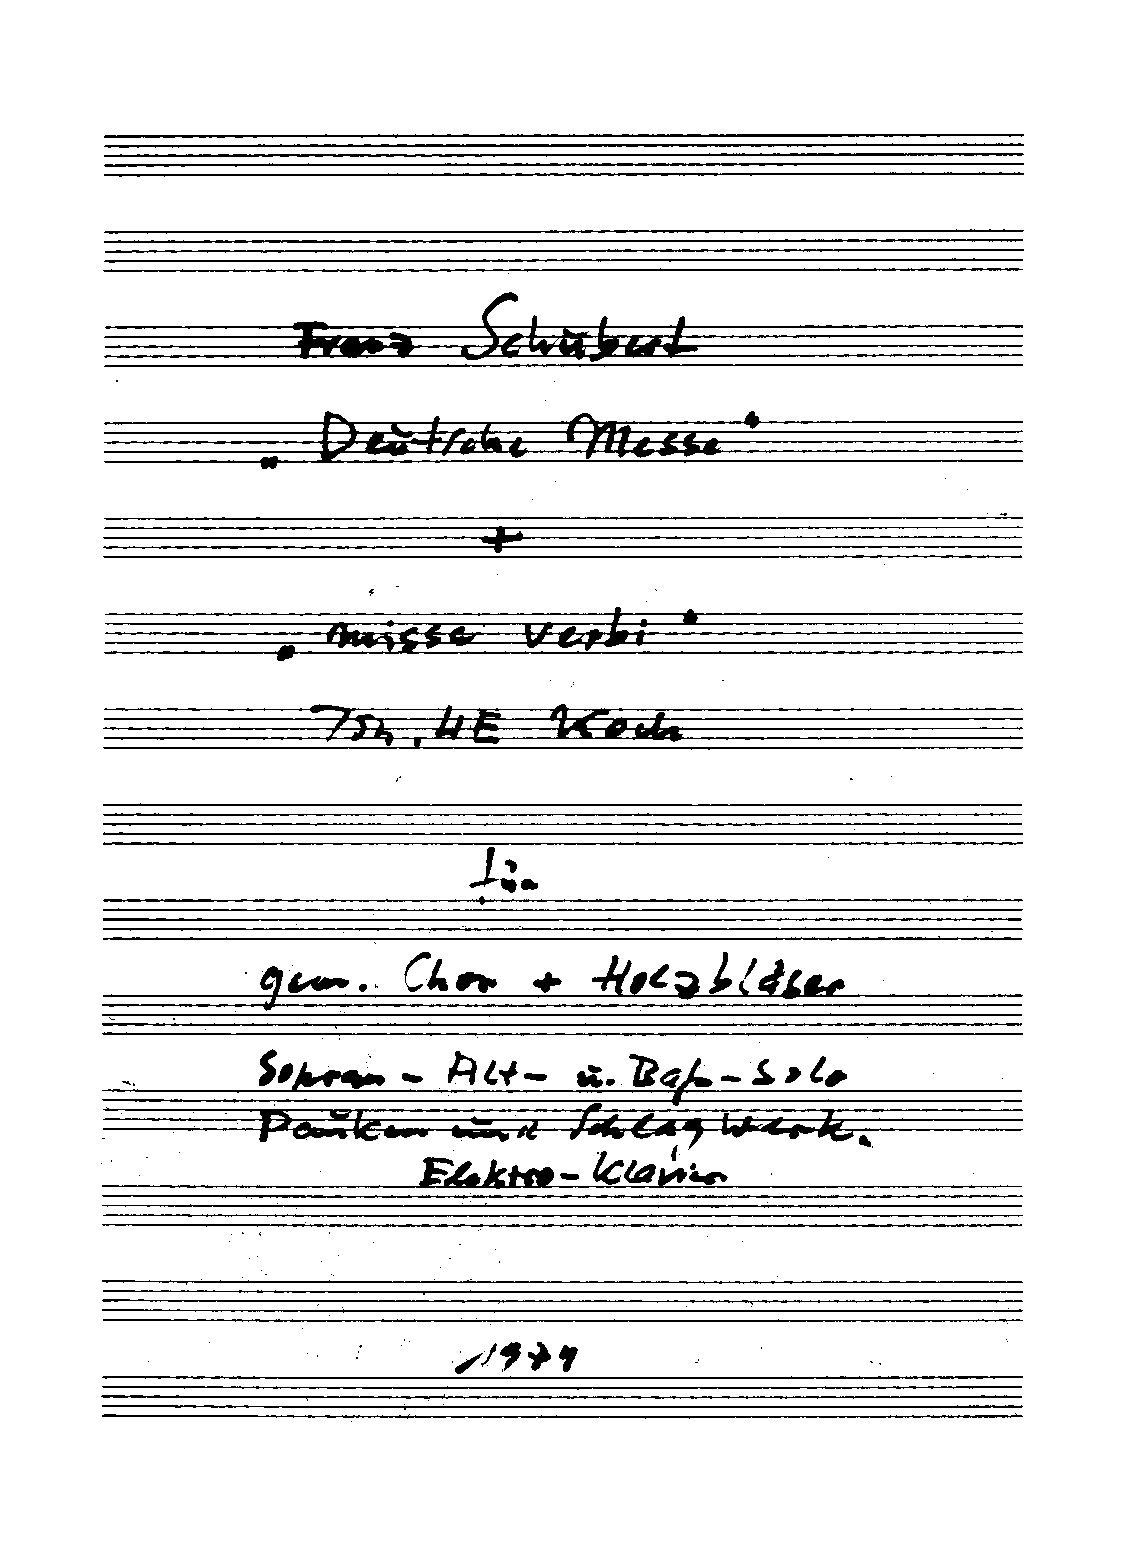 Franz Schubert
„Deutsche Messe"
+
„missa verbi"
Joh. HE Koch
für
gem. Chor + Holzbläser
Sopran- Alt- u. Baß-Solo
Pauken und Schlagwerk.
Elektro-Klavier
1979